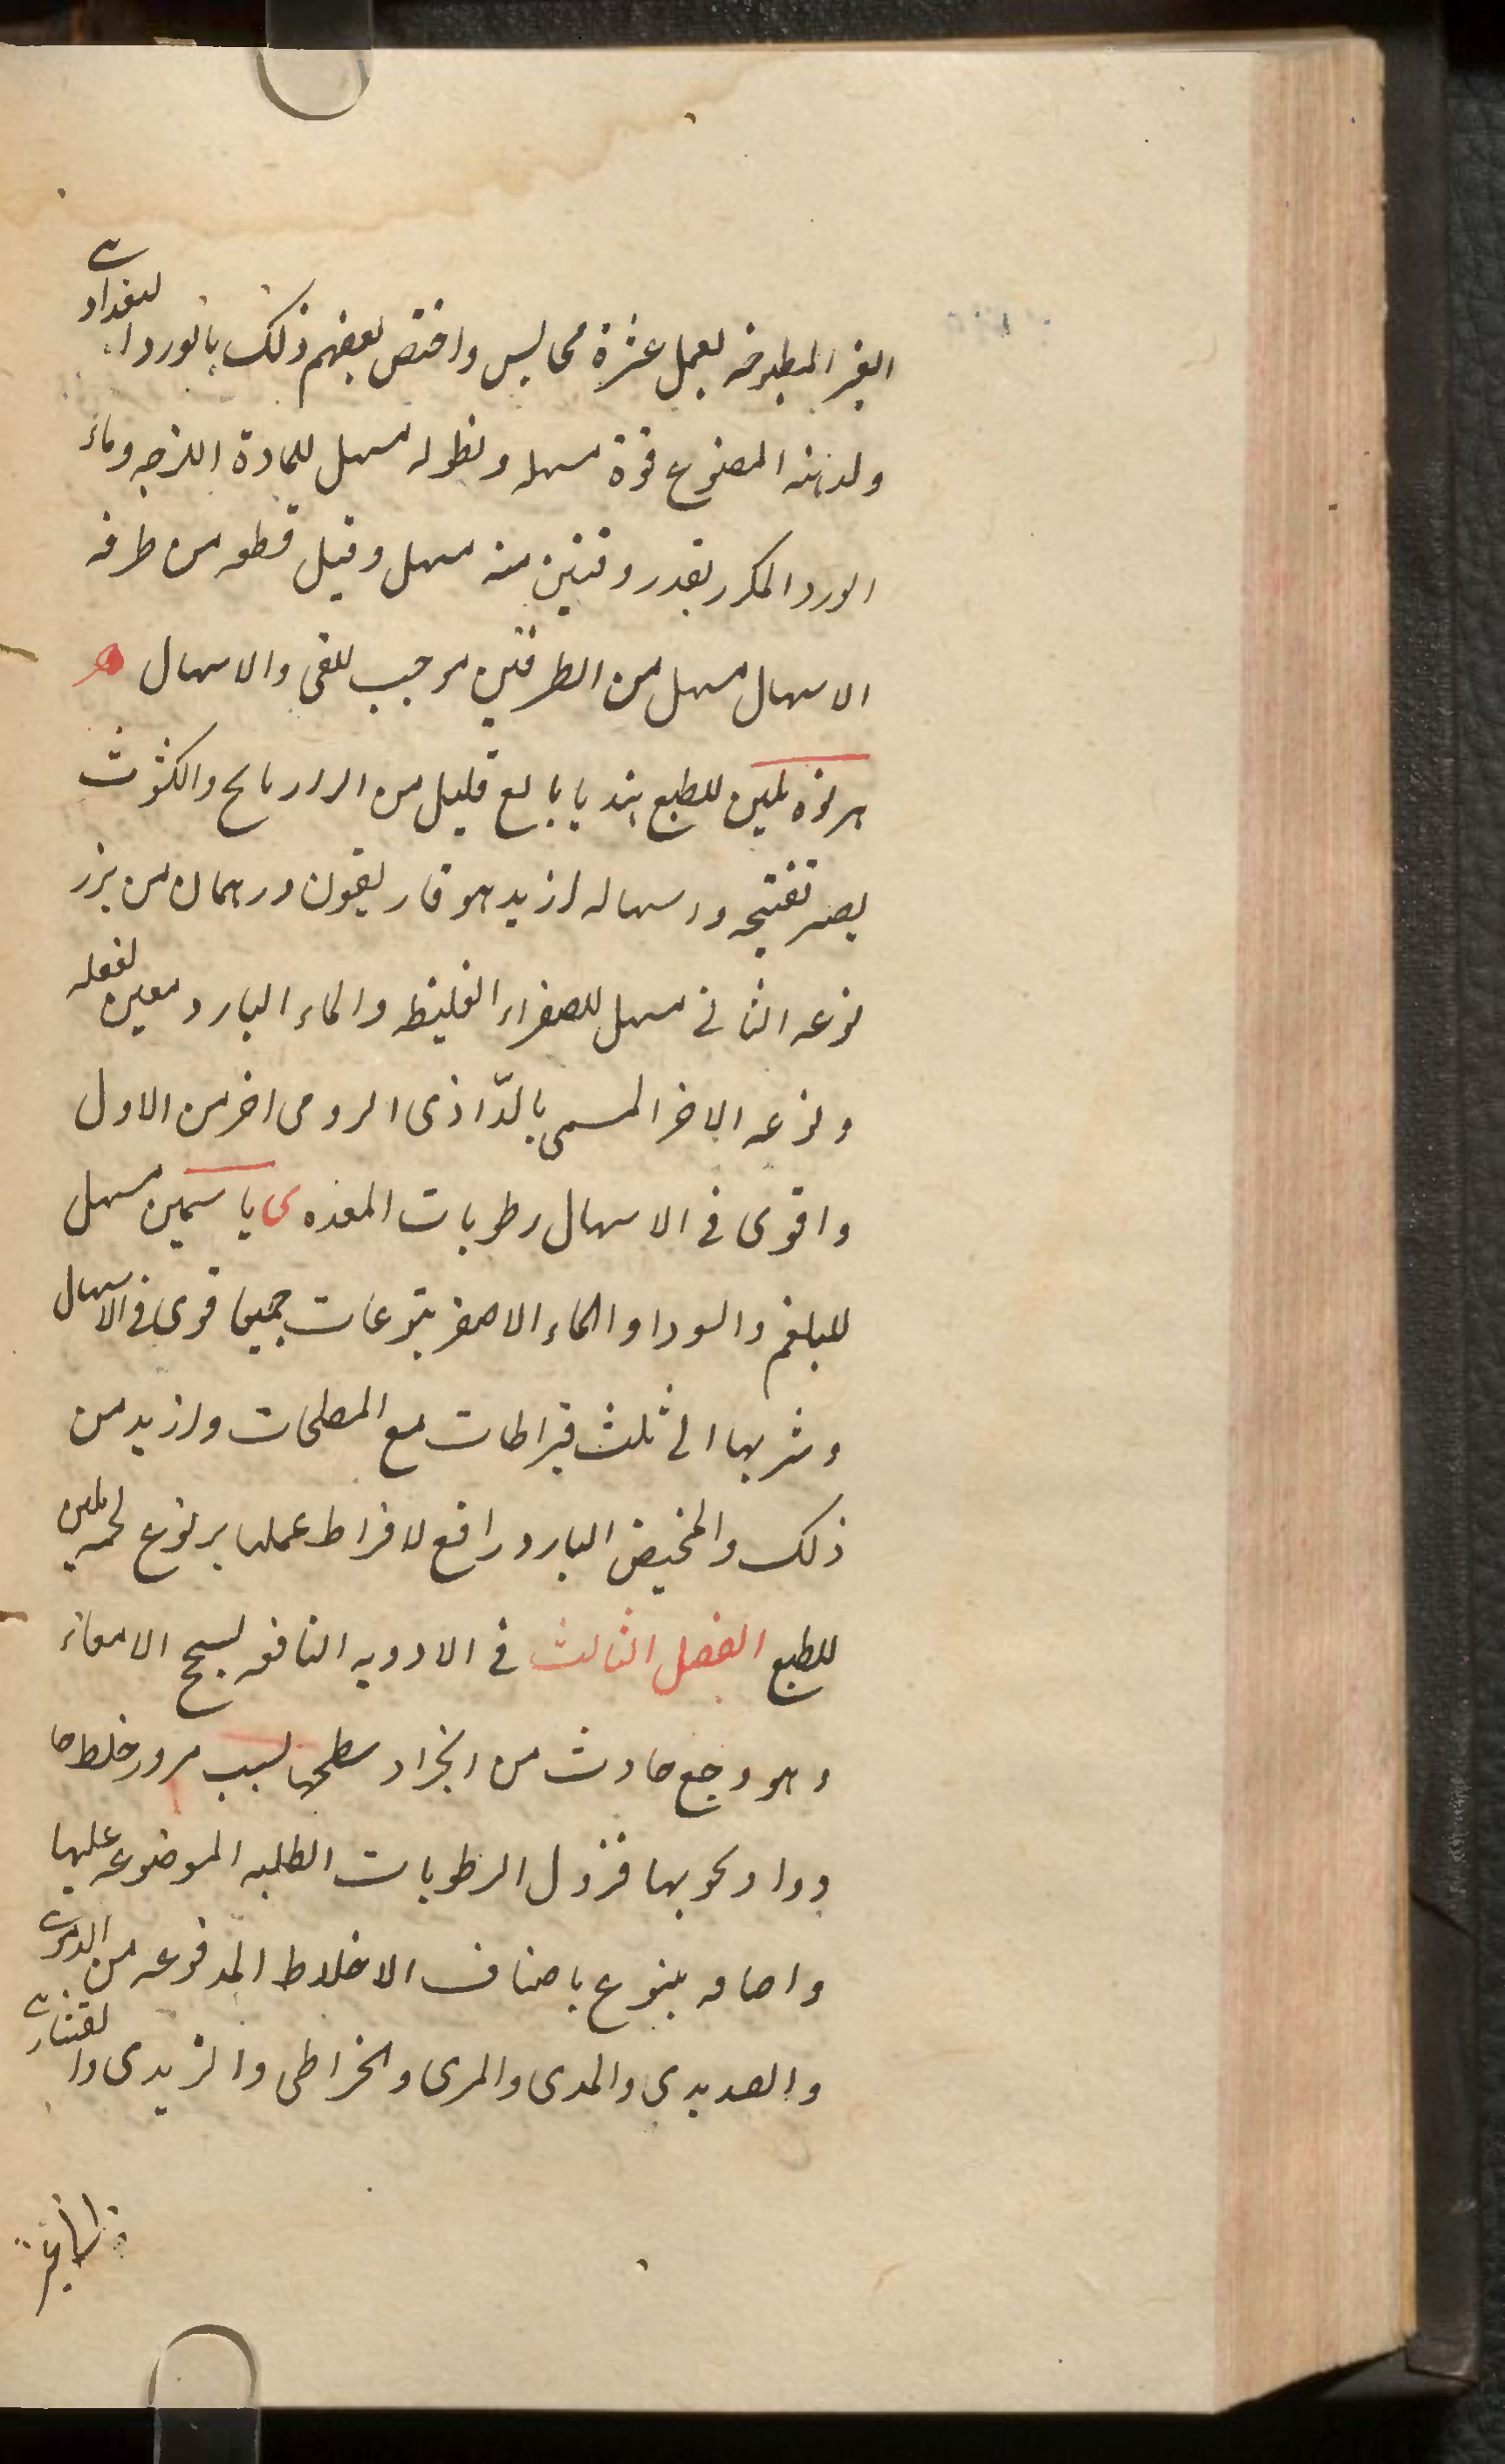 الغير المطبوخه يعمل عشرة مجاليس واختص بعضهم ذلك بالورد البغدادى
ولدهنه المصنوع قوة مسهله ونطوله مسهل للمادة اللزجه وماء
الورد المكرر بقدر وقيتين منه مسهل وقيل قطعه من طرفه
الاسهال مسهل من الطرفين موجب للقى والاسهال ه
هرنوه ملين للطبع هندبا مع قليل من الرازيانج والكثوث
يصير تفتيحه واسهاله ازيد هوفاريقون درهمان من بزر
نوعه الثانى مسهل للصفراء الغليظه والماء البارد معين لفعله
ونوعه الاخر المسمى بالدّاذى الرومى اخر من الاول
واقوى فى الاسهال رطوبات المعده ى ياسمين مسهل
للبلغم والسودا والماء الاصفر يتوعات جميعا قوى فى الاسهال
وشربها الى ثلث قيراطات مع المصلحات وازيد من
ذلك والمخيض البارد رافع لافراط عملها يربوع لحمه ملين
للطبع الفصل الثالث فى الادويه النافعه لسحج الامعاء
وهو وجع حادث من انجراد سطحها لسبب مرور خلط حا
ودواء ونحو بها فنزول الرطوبات الطلبه الموضوعه عليها
بنوع باصناف الاخلاط المدفوعه من الدموى
والصديدى والمدى والمرى والخراطى والزبدى وا